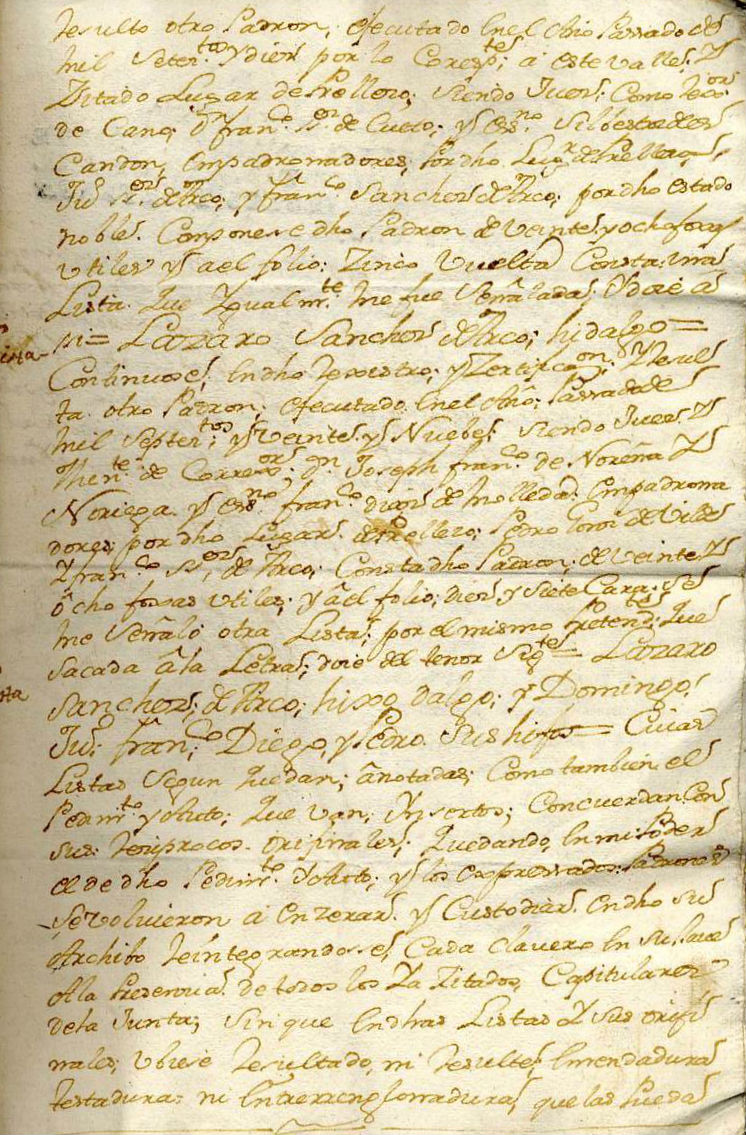 resulto otro Padron; efecutado en el Año Pasado de
mil Seter.tos y diez por lo Corresp.te; a este valle; y
Zitado Lugar de Prellezo; siendo Juez;
de Cano; D.n Fran.co de Cueto; y Ess.no Silbestre de
Candon, empadronadores; Por dho Lug.r de Prellezo,
Ju.o S.ez de Arco; y Fran.co Sanchez de Arco; por dho estado
noble. Componese dho Padron de veinte y ocho foxas
vtiles y a el folio; Zinco Vuelta Consta; una
Lista que Ygualm.te me fue Señalada; y dize a
si = Lazaro Sanchez de Arco; hidalgo =
Continuose; en dho rexistro; y Zertificaz.on y Resul
ta otro Padron; efecutado en el Año; Passado de
mil Septer.tos y veinte y Nuebe; siendo Juez y
Then.te de Correx.or; D.n Joseph fran.co de Noreña y
Noriega y Ess.no fran.co diaz de Molleda. Empadrona
dores; por dho Lugar de Prellezo; Pedro de
y fran.co S.ez de Arco; Consta dho Padron; de veinte y
ocho foxas vtiles; y a el folio; diez y siete Cara; se
me Señaló otra Lista; por el mismo Pretend.te; que
sacada a la Letra; dize del tenor sig.te = Lazaro
Sanchez; de Arco; hixo dalgo; y Domingo,
Ju.o fran.co; Diego, y Pedro sus hifos = Cuias
Listas segun quedan; anotadas; como tambien el
Pedim.to y Auto; que van; Ynsertos; Concuerdan Con
sus reziprocos orifinales; quedando, en mi Poder
el de dho Pedim.to y Auto; y los expressados Padrones
se volvieron a enzerrar y Custodiar en dho su
Archibo reintegrandose; Cada Clavero en su llave
A la Presencia de todos los Ya Zitados, Capitulares
de la Junta; sin que en dhas Listas y sus orifi
nales; vbiese resultado, ni resulte; enmendadura
testadura; ni Entrerrenglonadura, que las Pueda